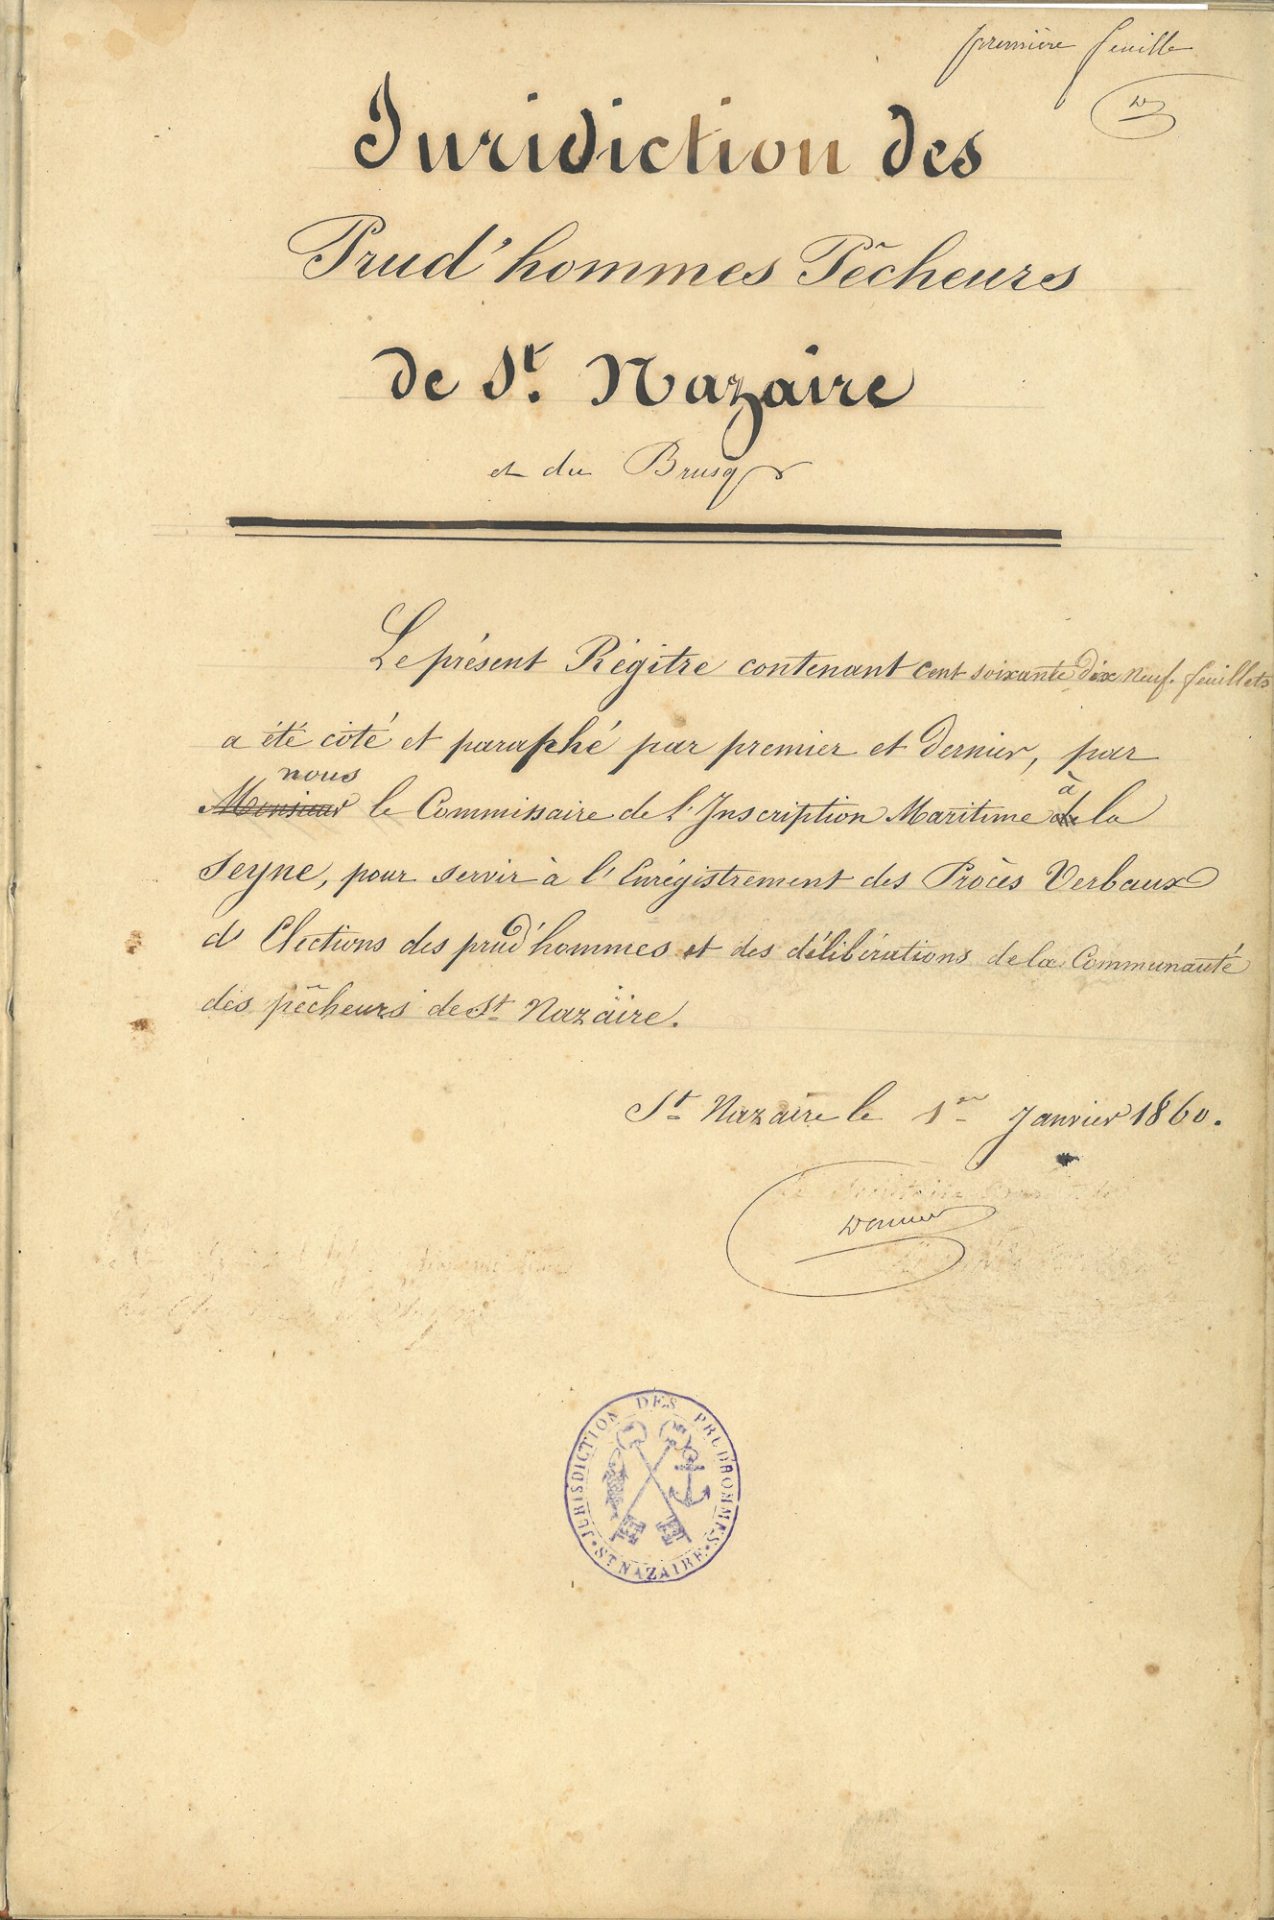 première feuille
Juridiction des
Prud'hommes Pêcheurs
de St. Nazaire
et du Brusq
Le présent Régitre contenant cent soixante dix neuf feuillets
a été côté et paraphé par premier et dernier, par
nous à
Monsieur le Commissaire de l'Inscription Maritime de la
Seyne, pour servir à l'Enrégistrement des Procès Verbaux
d'Elections des prud'hommes et des délibérations de la Communauté
des pêcheurs de St Nazaire.
St Nazaire le 1er Janvier 1860.
JURISDICTION DES PRUDHOMMES
ST NAZAIRE